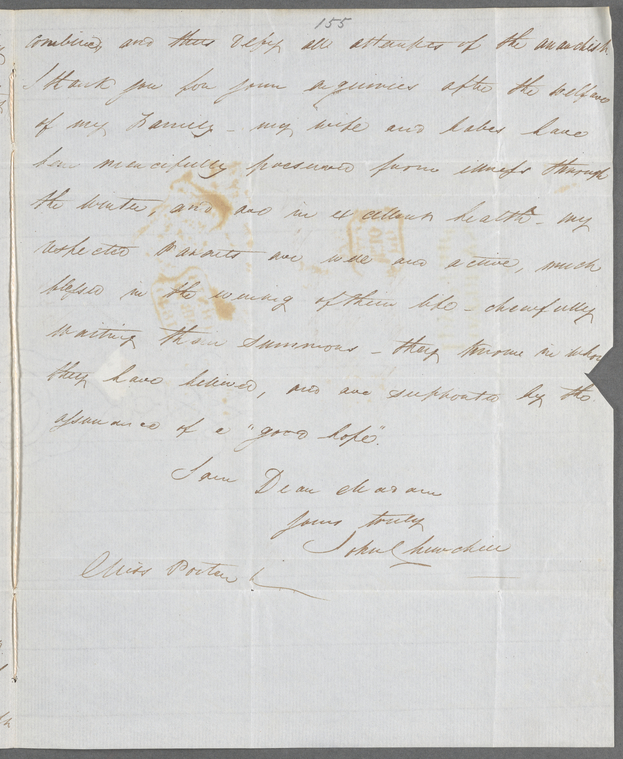 155
combined, and thus defy all attempts of the anarchist.
I thank you for your inquiries after the wellfare
of my Family – my wife and babes have
been mercifully preserved from illness through
the winter, and are in excellent health – my
respected Parents are well and active, much
blessed in the evening of their life – cheerfully
waiting their summons – they know in whom
they have believed, and are supported by the
assurance of a "good hope".
I am Dear Madam
yours truly
John Churchill
Miss Porter